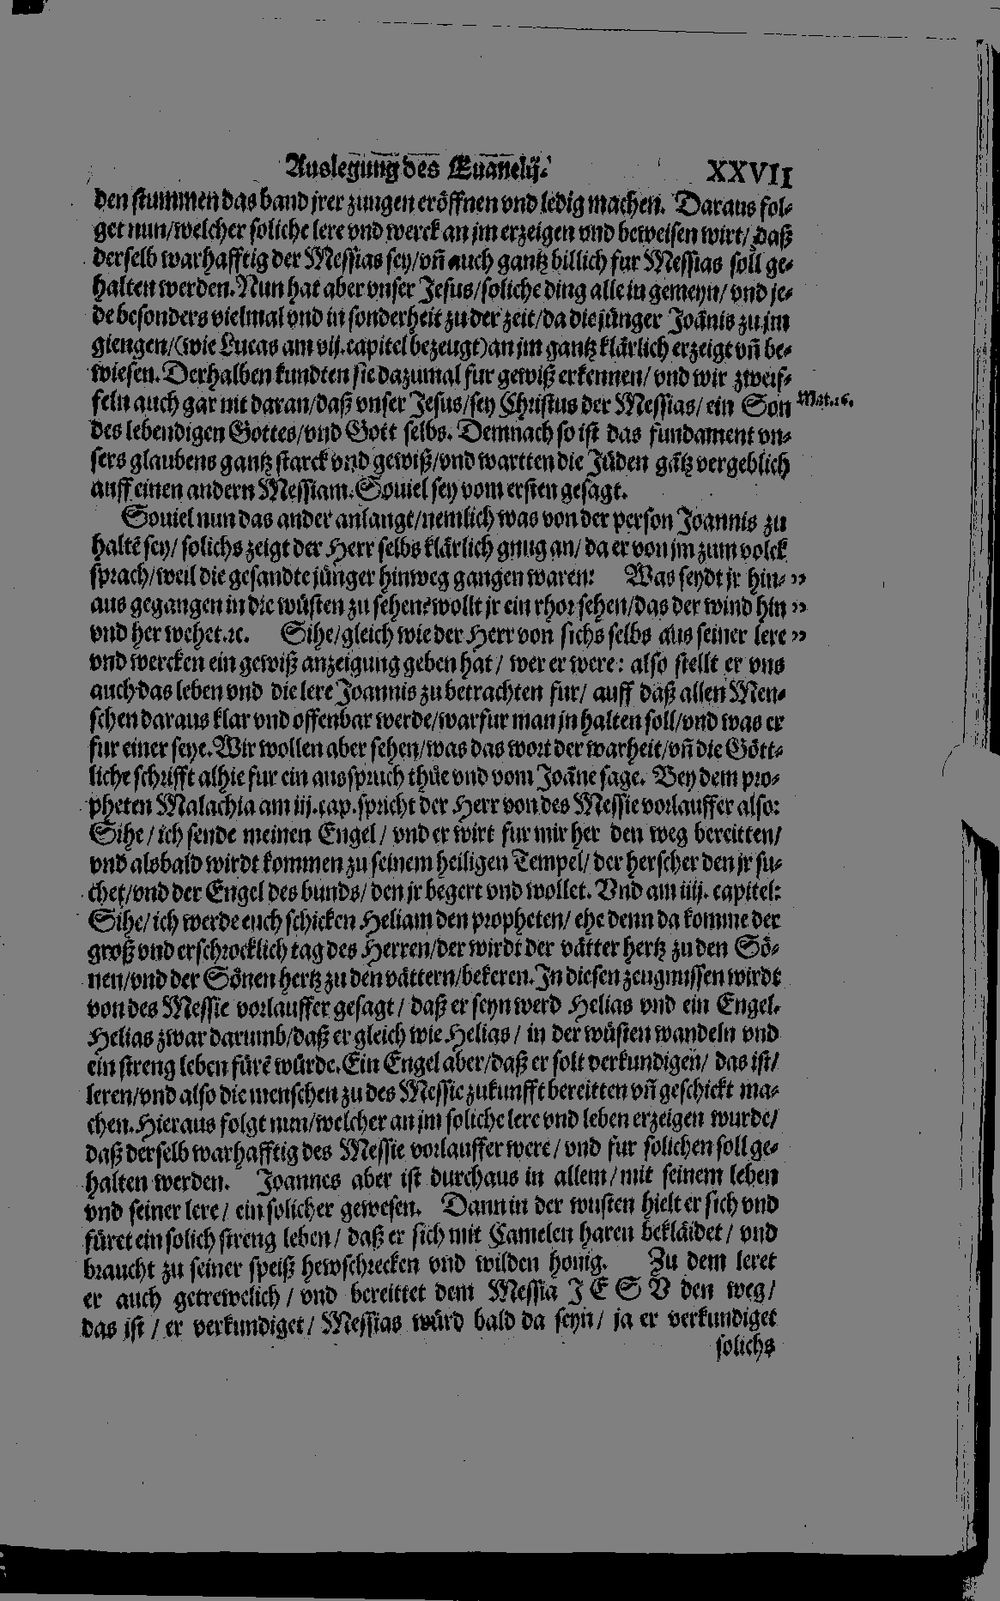 Auslegung des Euāgelij. XXVII
den stummen das band jrer zungen eröffnen vnd ledig machen. Daraus fol-
get nun/welcher soliche lere vnd werck an jm erzeigen vnd beweisen wirt/ daß
derselb warhafftig der Messias sey/vn̄ auch gantz billich fur Messias soll ge-
halten werden. Nun hat aber vnser Jesus/soliche ding alle in gemeyn/ vnd je-
de besonders vielmal vnd in sonderheit zu der zeit/da die jünger Joānis zu jm
giengen/(wie Lucas am vij. capitel bezeugt) an jm gantz klärlich erzeigt vn̄ be-
wiesen. Derhalben kundten sie dazumal fur gewiß erkennen/ vnd wir zweif-
feln auch gar nit daran/daß vnser Jesus/sey Christus der Messias/ ein Son
Mat.16.
des lebendigen Gottes/vnd Gott selbs. Demnach so ist das fundament vn-
sers glaubens gantz starck vnd gewiß/vnd wartten die Jüden gātz vergeblich
auff einen andern Messiam. Souiel sey vom ersten gesagt.
Souiel nun das ander anlangt/nemlich was von der person Joannis zu
haltē sey/ solichs zeigt der Herr selbs klärlich gnug an/ da er von jm zum volck
sprach/weil die gesandte jünger hinweg gangen waren: Was seydt jr hin- ”
aus gegangen in die wüsten zu sehen? wollt jr ein rhor sehen/das der wind hin ”
vnd her wehet.ꝛc. Sihe/gleich wie der Herr von sichs selbs aus seiner lere ”
vnd wercken ein gewiß anzeigung geben hat/ wer er were: also stellt er vns
auch das leben vnd die lere Joannis zu betrachten fur/ auff daß allen Men-
schen daraus klar vnd offenbar werde/warfur man jn halten soll/vnd was er
fur einer seye. Wir wollen aber sehen/was das wort der warheit/vn̄ die Gött-
liche schrifft alhie fur ein ausspruch thüe vnd vom Joāne sage. Bey dem pro-
pheten Malachia am iij.cap.spricht der Herr von des Messie vorlauffer also:
Sihe/ ich sende meinen Engel/ vnd er wirt fur mir her den weg bereitten/
vnd alsbald wirdt kommen zu seinem heiligen Tempel/ der herscher den jr su-
chet/vnd der Engel des bunds/ den jr begert vnd wollet. Vnd am iiij. capitel:
Sihe/ ich werde euch schicken Heliam den propheten/ ehe denn da komme der
groß vnd erschrocklich tag des Herren/der wirdt der vätter hertz zu den Sö-
nen/vnd der Sönen hertz zu den vättern/bekeren. In diesen zeugnussen wirdt
von des Messie vorlauffer gesagt/ daß er seyn werd Helias vnd ein Engel.
Helias zwar darumb/daß er gleich wie Helias/ in der wüsten wandeln vnd
ein streng leben fürē würde. Ein Engel aber/daß er solt verkundigen/ das ist/
leren/vnd also die menschen zu des Messie zukunfft bereitten vn̄ geschickt ma-
chen. Hieraus folgt nun/welcher an jm soliche lere vnd leben erzeigen wurde/
daß derselb warhafftig des Messie vorlauffer were/ vnd fur solichen soll ge-
halten werden. Joannes aber ist durchaus in allem/ mit seinem leben
vnd seiner lere/ ein solicher gewesen. Dann in der wusten hielt er sich vnd
füret ein solich streng leben/ daß er sich mit Camelen haren bekläidet/ vnd
braucht zu seiner speiß hewschrecken vnd wilden honig. Zu dem leret
er auch getrewelich/ vnd bereittet dem Messia JESV den weg/
das ist/ er verkundiget/ Messias würd bald da seyn/ ja er verkundiget
solichs